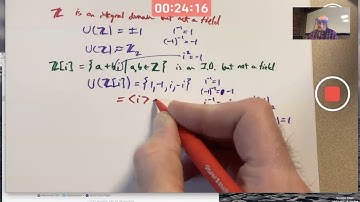 00:24:16
ℤ is an integral domain but not a field
U(ℤ) = ±1
1⁻¹ = 1
(-1)⁻¹ = -1
U(ℤ) ≈ ℤ₂
i⁻² = -1
ℤ[i] = {a+bi | a,b ∈ ℤ} is an I.D. but not a field
U(ℤ[i]) = {1, -1, i, -i}
1⁻¹ = 1
(-1)⁻¹ = -1
= <i>
i⁻¹ =
= 1